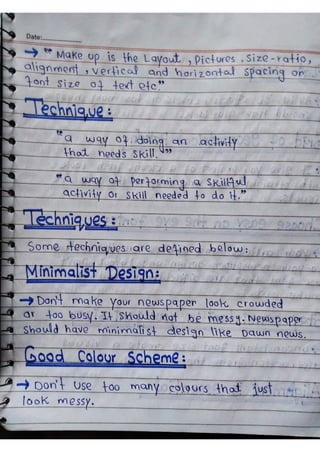 Date:
→ " Make up is the Layout, pictures, size-ratio,
alignment, vertical and horizontal spacing or
font size of text etc"
Technique:
"a way of doing an activity
that needs skill."
"a way of performing a skillful
activity or skill needed to do it."
Techniques:
Some techniques are defined below:
Minimalist Design:
→ Don't make your newspaper look crowded
or too busy. It should not be messy. Newspaper
should have minimalist design like Dawn news.
Good Colour Scheme:
→ Don't use too many colours that just
look messy.